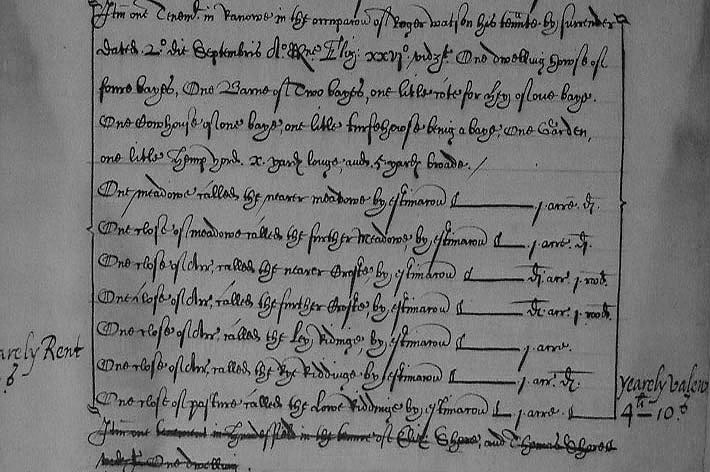 Itm one Tenemt. in Ranowe in the occupacon of Roger Watson his tennte by surrender
dated 2o. die Septembris Ao. RRne Eliz: xxvjo. vidzt. One dwelling howse of
fowre bayes, One Barne of Two bayes, one litle cote for hey of one bay.
One Cowhouse of one baye, one litle turfehowse being a baye, One Garden,
one litle Hemp yord. x. yardes longe, and. 5 yardes broade. /
One meadowe called the nearer meadowe by estimacon C j. acre. di.
One close of meadowe called the further Meadowe, by, estimacon C j. acre. di.
One close of Arr. called the nearer Crofte by, estimacon C di. acr. j. rood.
One close of Arr. called the further Crofte by, estimacon C di. acr. j. rood.
One close of Arr. called the Ley Ridinge, by, estimacon C j. acre.
One close of Arr. called the Rye Riddinge by, estimacon C j. acr. di.
One close of pasture called the Lowe Riddinge by, estimacon C j. acre. C
Itm one tenement in in the tenure of Shore, and Thomas Shores
One dwelling
arely Rent
yearely valew
4li 10s